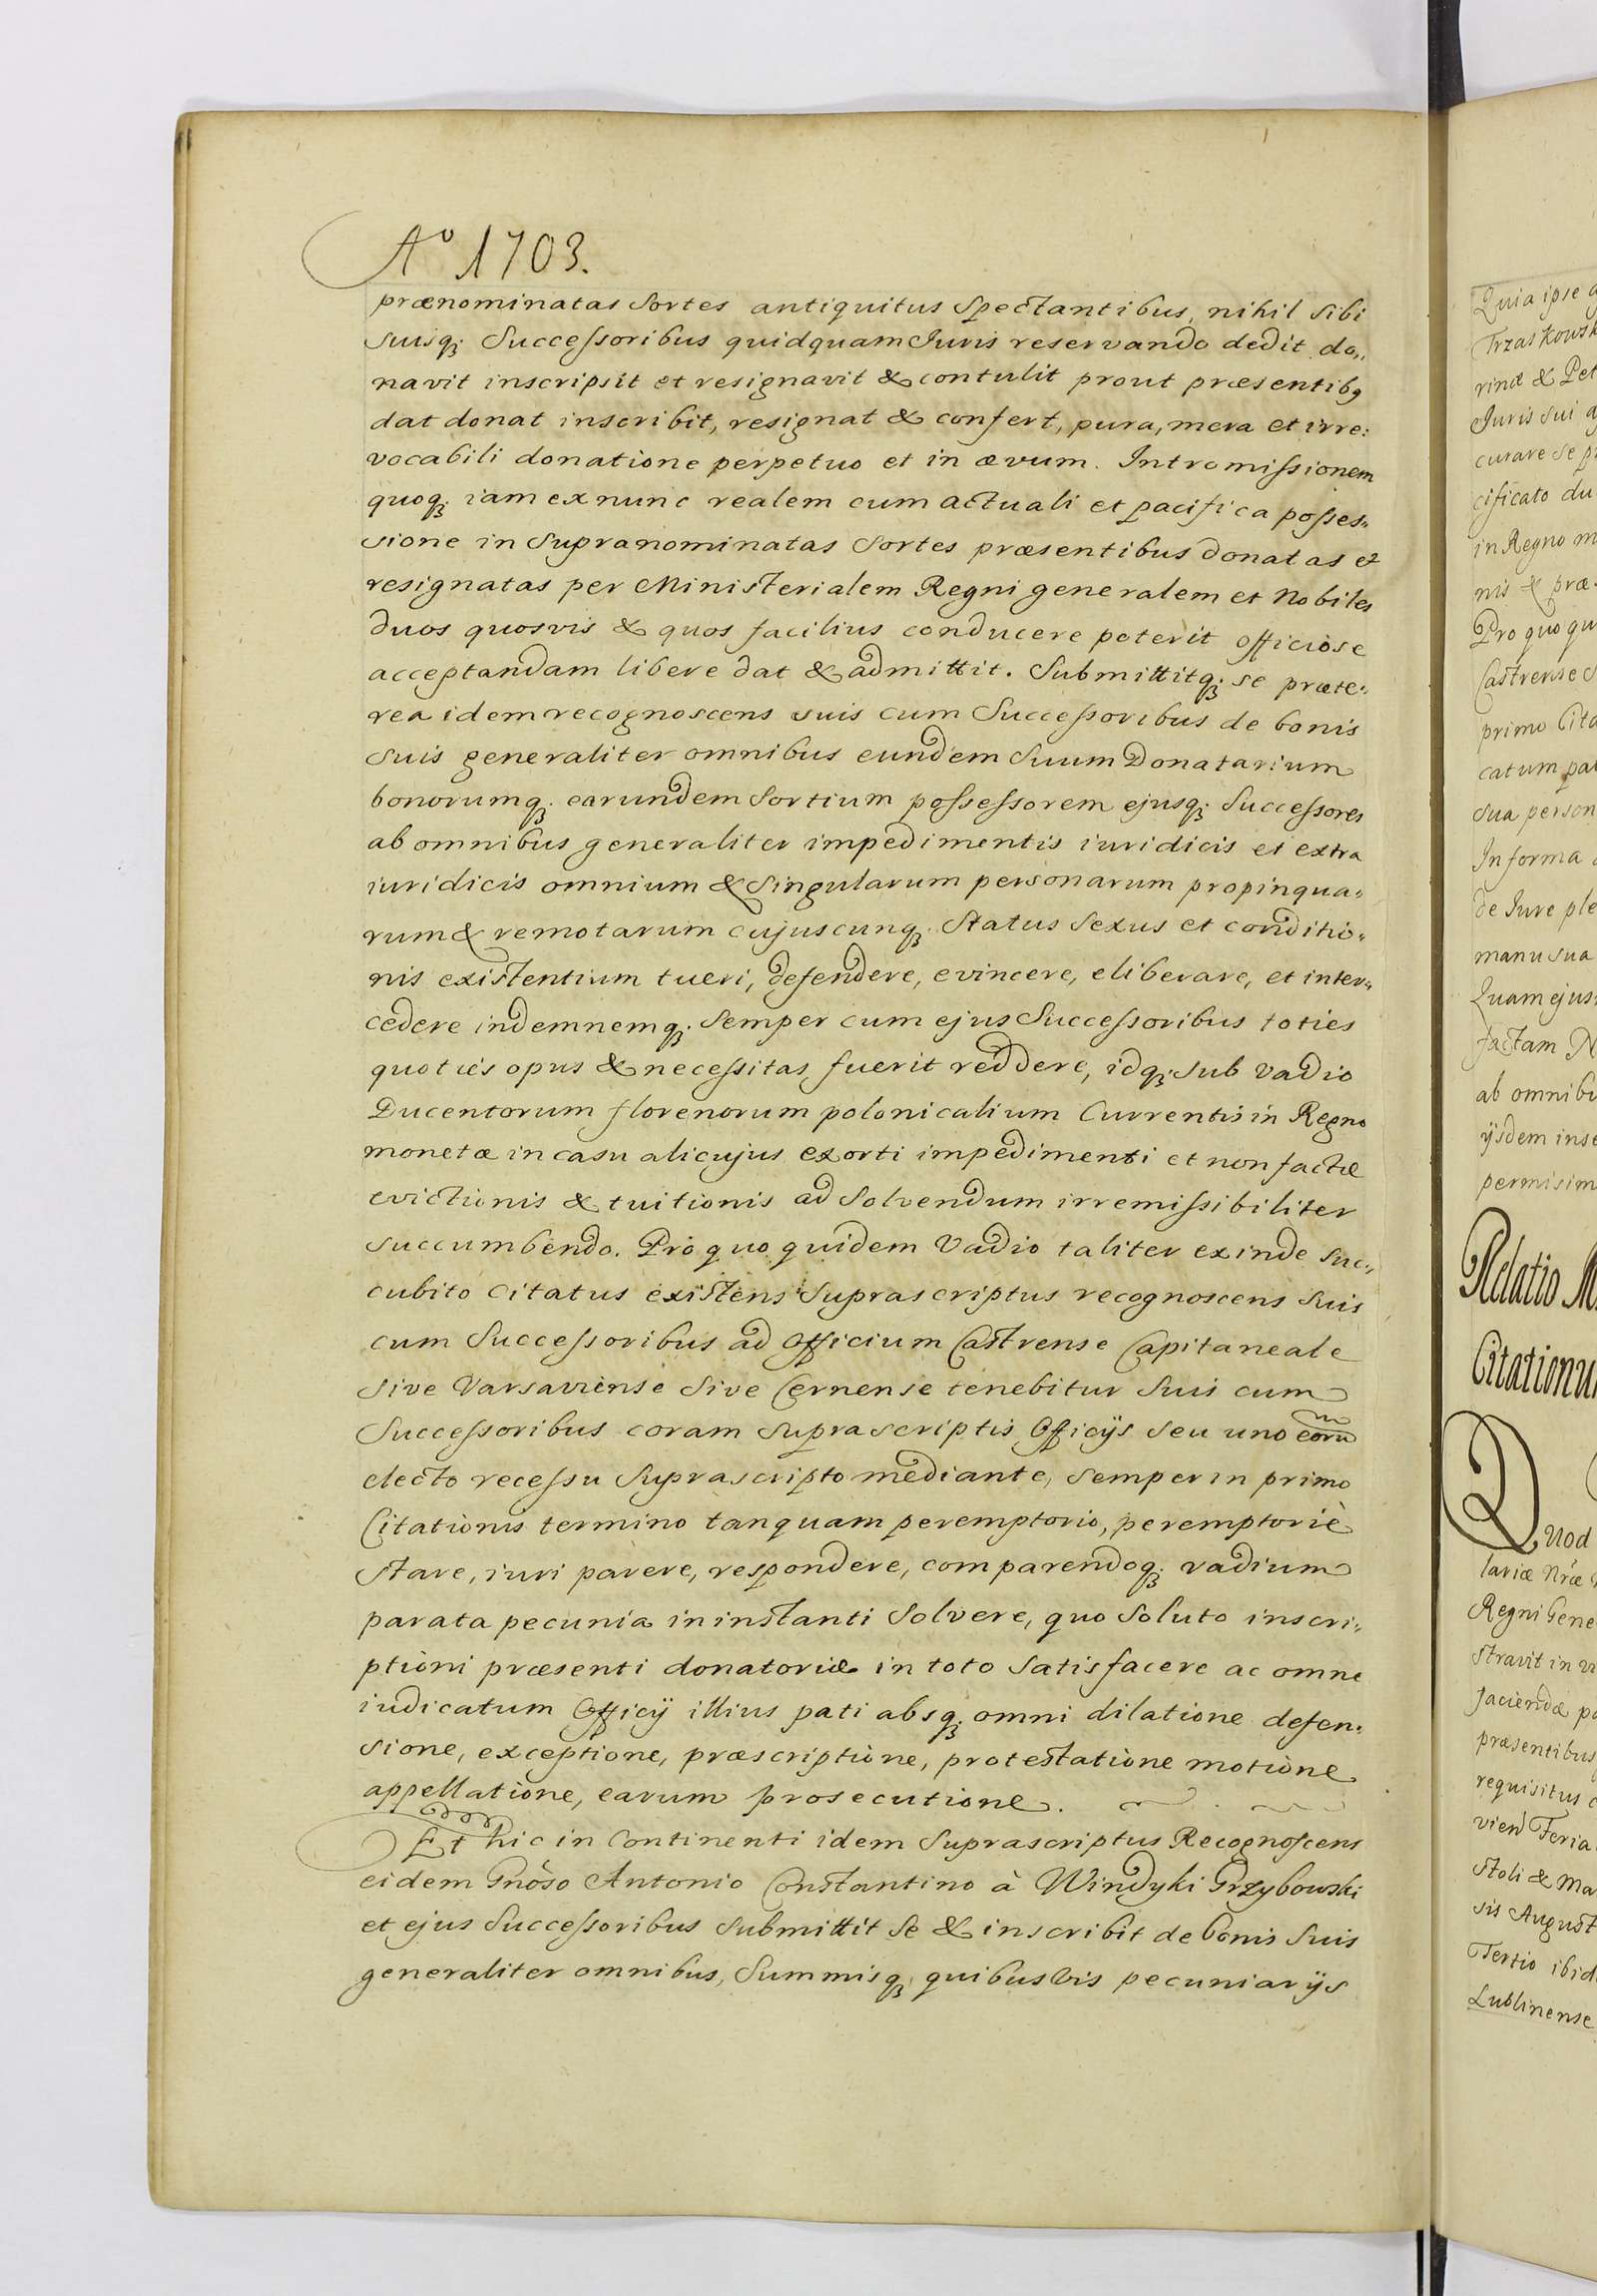 Aº 1703.
prænominatas Sortes antiquitus Spectantibus, nihil sibi
suisq; Successoribus quidquam Iuris reservando dedit do,,
navit inscripsit et resignavit & contulit prout præsentibq
dat donat inscribit, resignat & confert, pura, mera et irre:
vocabili donatione perpetuo et in ævum. Intromissionem
quoq; iam ex nunc realem cum actuali et pacifica posses,,
sione in Supranominatas Sortes præsentibus donatas et
resignatas per Ministerialem Regni generalem et Nobiles
duos quosvis & quos facilius conducere poterit officiose
acceptandam libere dat & admittit. Submittitq; se præte,,
rea idem recognoscens suis cum Successoribus de bonis
suis generaliter omnibus eundem Suum Donatarium
bonorumq; earundem Sortium possessorem ejusq; Successores
ab omnibus generaliter impedimentis iuridicis et extra
iuridicis omnium & singularum personarum propinqua,,
rum & remotarum cujuscunq; Status Sexus et conditio,,
nis existentium tueri, defendere, evincere, eliberare, et inter,,
cedere indemnemq; semper cum ejus Successoribus toties
quoties opus & necessitas fuerit reddere, idq; sub vadio
Ducentorum florenorum polonicalium Currentis in Regno
monetæ in casu alicujus exorti impedimenti et non factæ
evictionis & tuitionis ad Solvendum irremissibiliter
succumbendo. Pro quo quidem Vadio taliter exinde suc,,
cubito Citatus existens Suprascriptus recognoscens suis
cum Successoribus ad Officium Castrense Capitaneale
sive Varsaviense sive Cernense tenebitur suis cum
Successoribus coram suprascriptis Officijs seu uno eoru
electo recessu Suprascripto mediante, semper in primo
Citationis termino tanquam peremptorio, peremptoriè
stare, iuri parere, respondere, comparendoq; vadium
parata pecunia in instanti Solvere, quo Soluto inscri,,
ptioni præsenti donatoriæ in toto Satisfacere ac omne
iudicatum Officij illius pati absq; omni dilatione defen,,
sione, exceptione, præscriptione, protestatione motione
appellatione, earum prosecutione.
Et hic in Continenti idem Suprascriptus Recognoscens
eidem Gnoso Antonio Constantino à Windyki Grzybowski
et ejus Successoribus submittit se & inscribit de bonis Suis
generaliter omnibus, Summisq; quibusvis pecuniarijs
Quia ipse
Trzaskowsk
rinæ & Pet
Iuris sui
curare se
cificato du
in Regno m
nis & præ
Pro quo qu
Castrense
primo Cita
catum pa
sua person
In forma
de Iure ple
manu sua
Quam ejus
factam N
ab omnibu
ijsdem inse
permisim
Relatio M
Citationu
Quod
lariæ Nræ
Regni Gene
stravit in
faciendæ po
præsentibus
requisitus
vien Feria
stoli & Ma
sis August
Tertio ibid
Lublinense